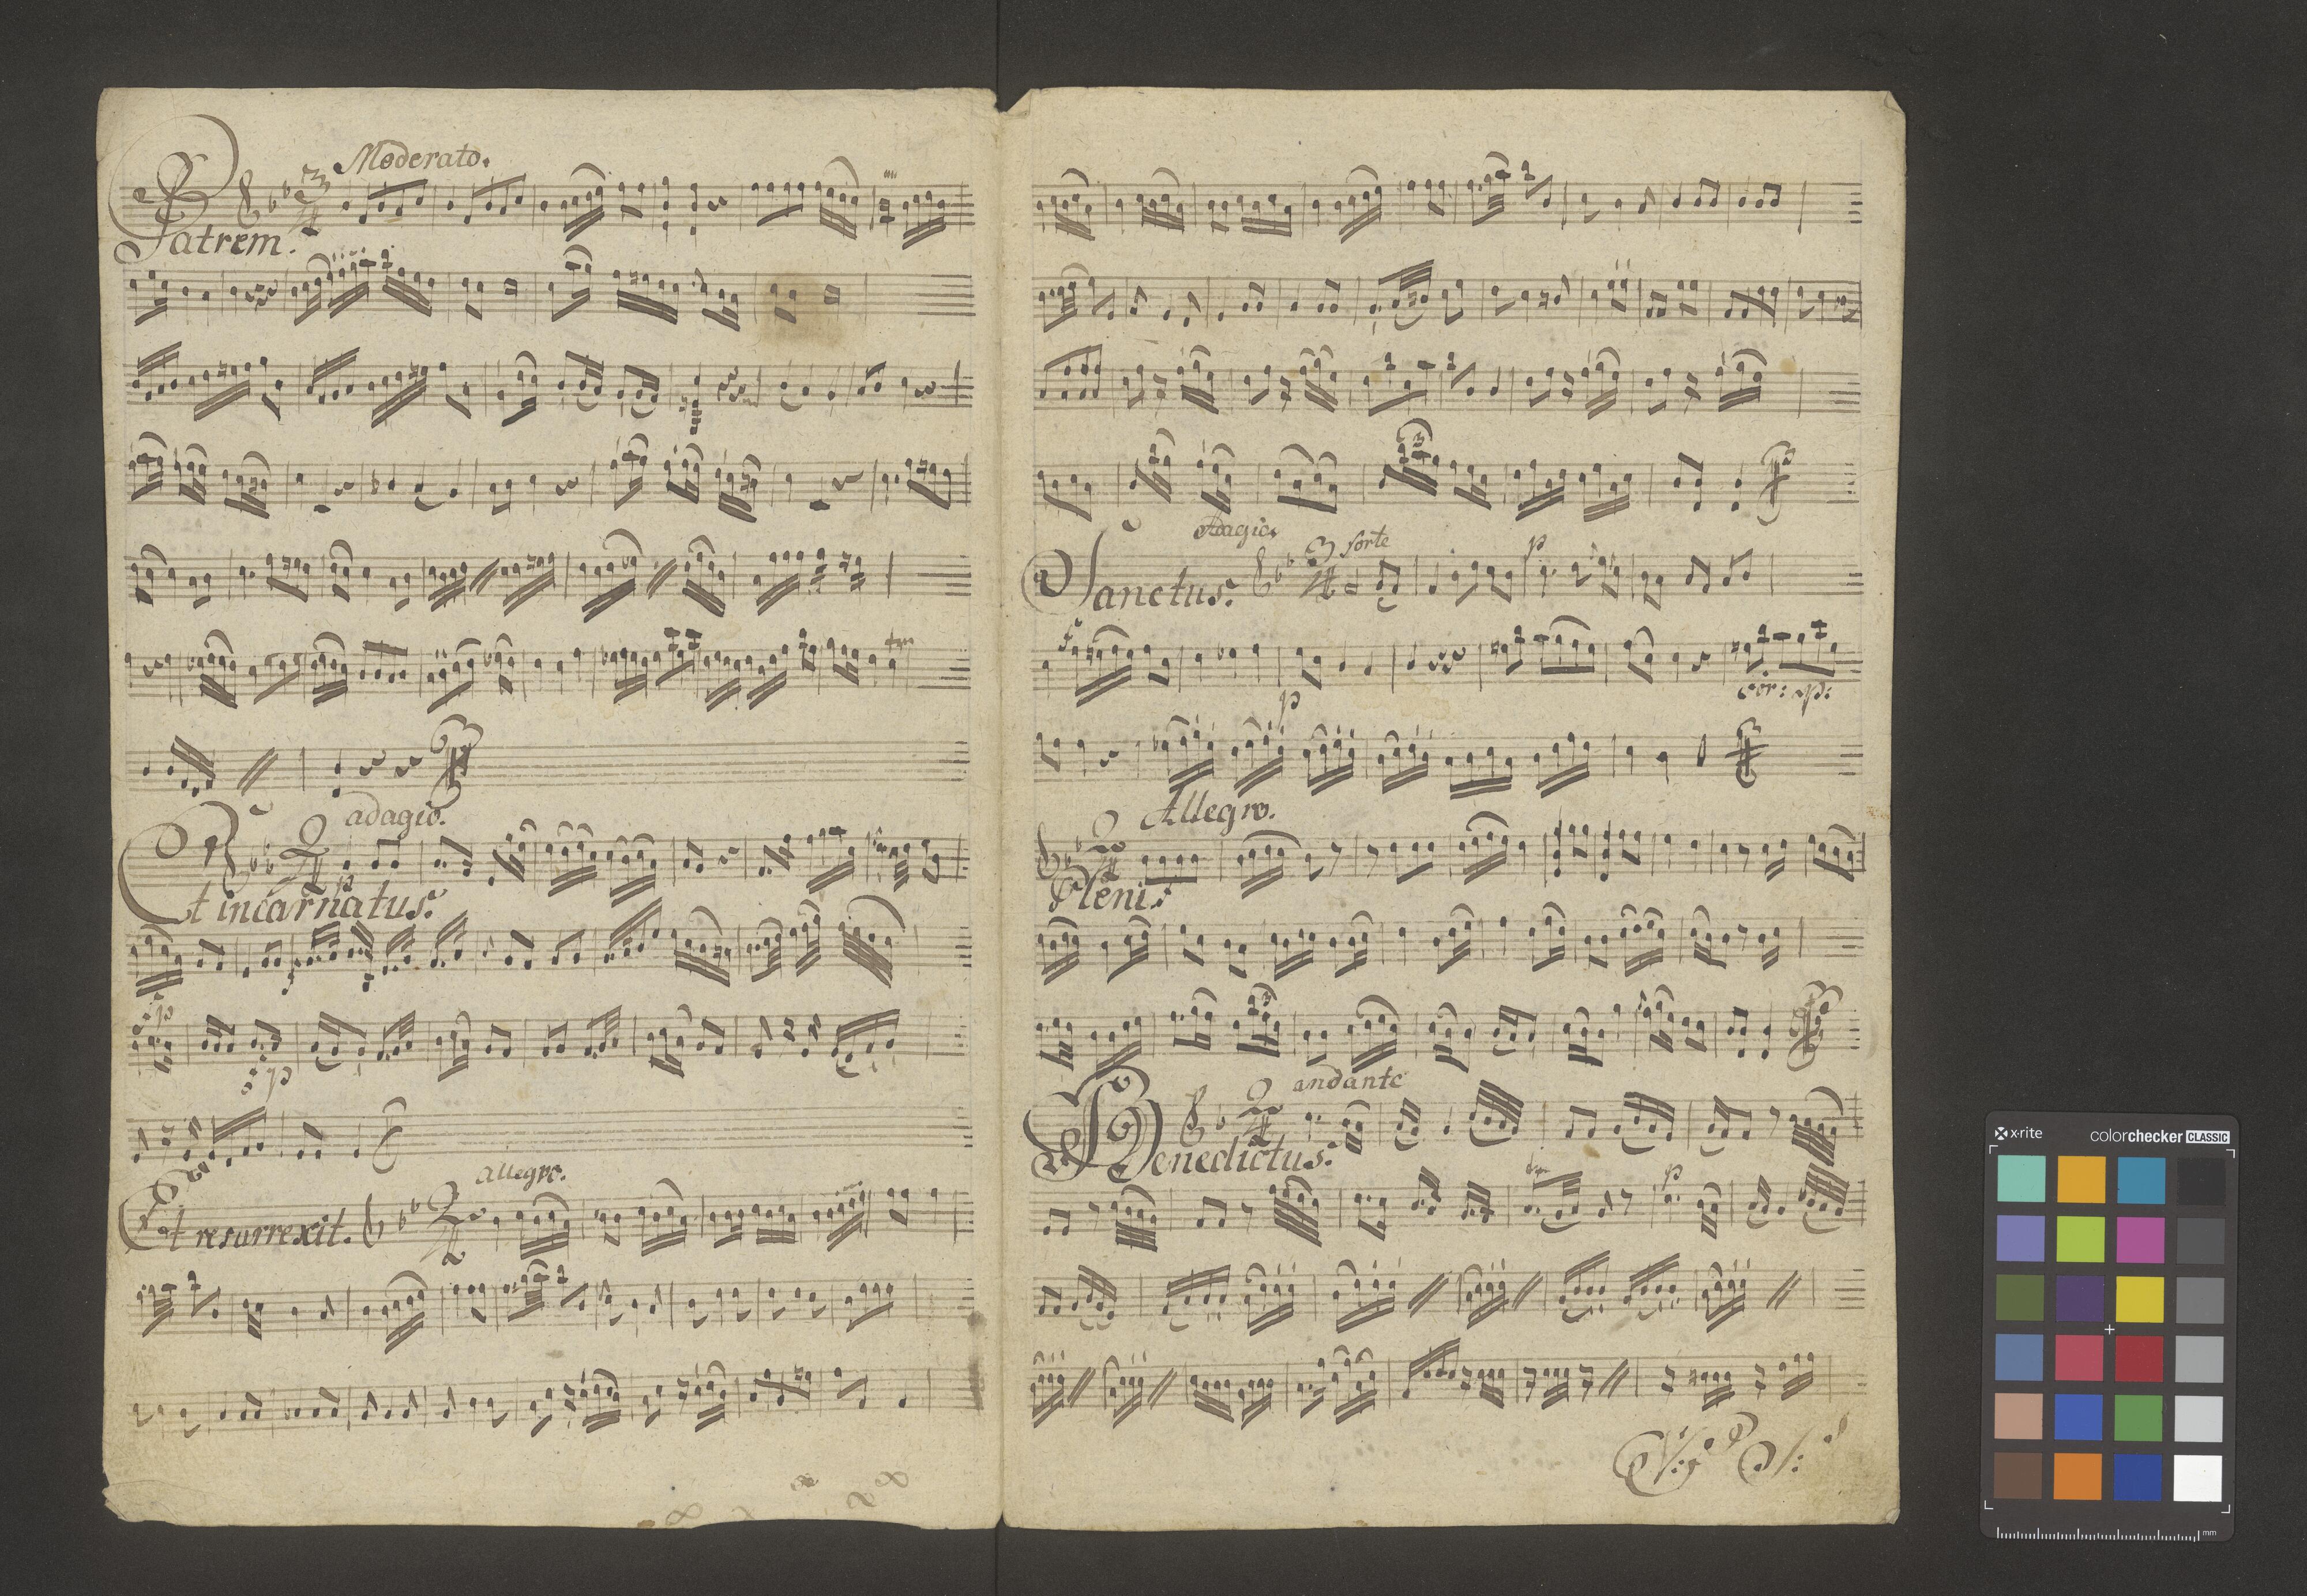 Moderato.
Patrem.
adagio.
p
Et incarnatus.
p
p
allegro.
Et resurrexit.
Adagio. forte p
Sanctus.
p
Allegro.
Pleni.
andante
Benedictus.
p
x·rite colorchecker CLASSIC
mm